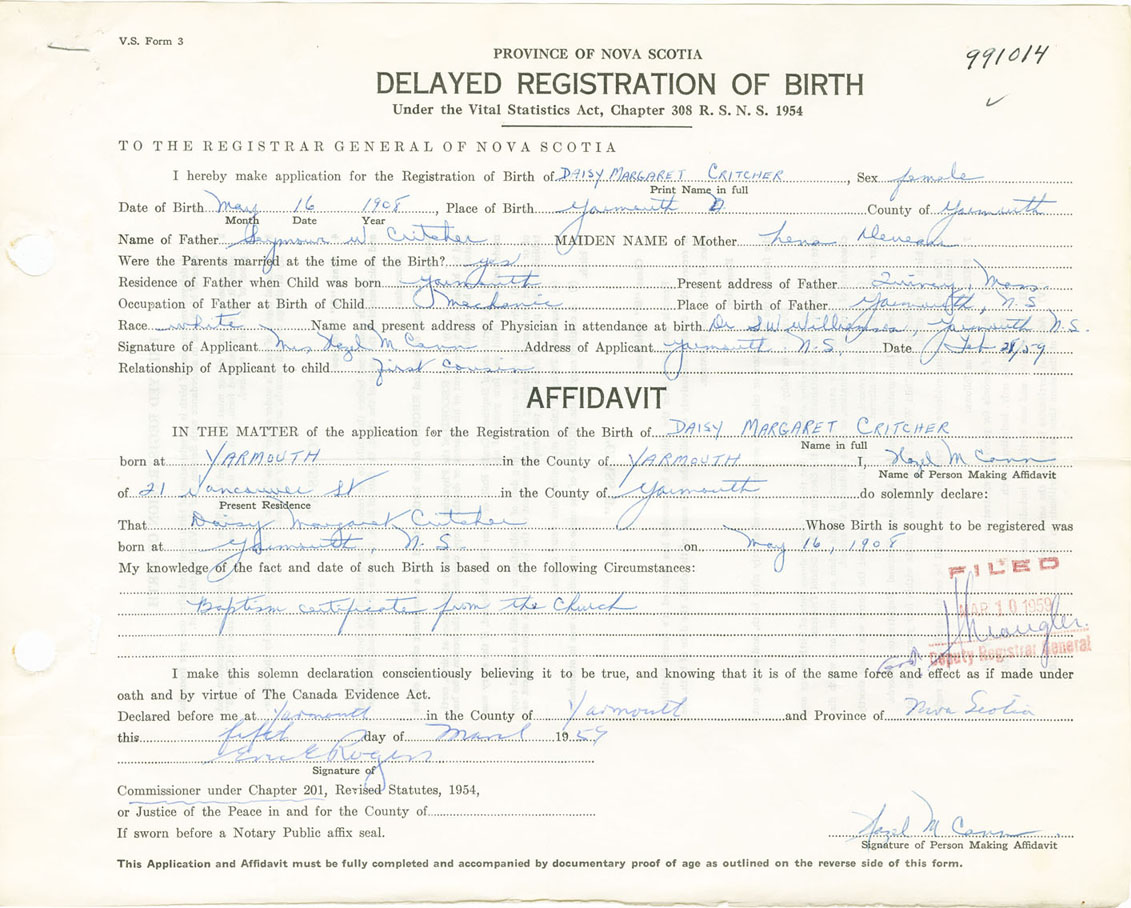 V.S. Form 3
PROVINCE OF NOVA SCOTIA
991014
DELAYED REGISTRATION OF BIRTH
Under the Vital Statistics Act, Chapter 308 R. S. N. S. 1954
TO THE REGISTRAR GENERAL OF NOVA SCOTIA
I hereby make application for the Registration of Birth of DAISY MARGARET CRITCHER, Sex female
Print Name in full
Date of Birth May 16 1908, Place of Birth Yarmouth County of Yarmouth
Month Date Year
Name of Father Seymour W Critcher MAIDEN NAME of Mother Lena Deveau
Were the Parents married at the time of the Birth? yes
Residence of Father when Child was born Yarmouth Present address of Father Quincy, Mass
Occupation of Father at Birth of Child Mechanic Place of birth of Father Yarmouth, N.S.
Race white Name and present address of Physician in attendance at birth Dr S.W. Williamson, Yarmouth N.S.
Signature of Applicant Mrs Hazel McCann Address of Applicant Yarmouth N.S. Date Feb 28/59
Relationship of Applicant to child first cousin
AFFIDAVIT
IN THE MATTER of the application for the Registration of the Birth of DAISY MARGARET CRITCHER
Name in full
born at YARMOUTH in the County of YARMOUTH I, Hazel McCann
Name of Person Making Affidavit
of 21 Vancouver St in the County of Yarmouth do solemnly declare:
Present Residence
That Daisy Margaret Critcher Whose Birth is sought to be registered was
born at Yarmouth, N.S. on May 16, 1908
My knowledge of the fact and date of such Birth is based on the following Circumstances:
FILED
Baptism certificate from the Church
MAR 10 1959
Deputy Registrar General
I make this solemn declaration conscientiously believing it to be true, and knowing that it is of the same force and effect as if made under
oath and by virtue of The Canada Evidence Act.
Declared before me at Yarmouth in the County of Yarmouth and Province of Nova Scotia
this fifth day of March 1959
Eric E Rogers
Signature of
Commissioner under Chapter 201, Revised Statutes, 1954,
or Justice of the Peace in and for the County of
If sworn before a Notary Public affix seal.
Hazel McCann
Signature of Person Making Affidavit
This Application and Affidavit must be fully completed and accompanied by documentary proof of age as outlined on the reverse side of this form.